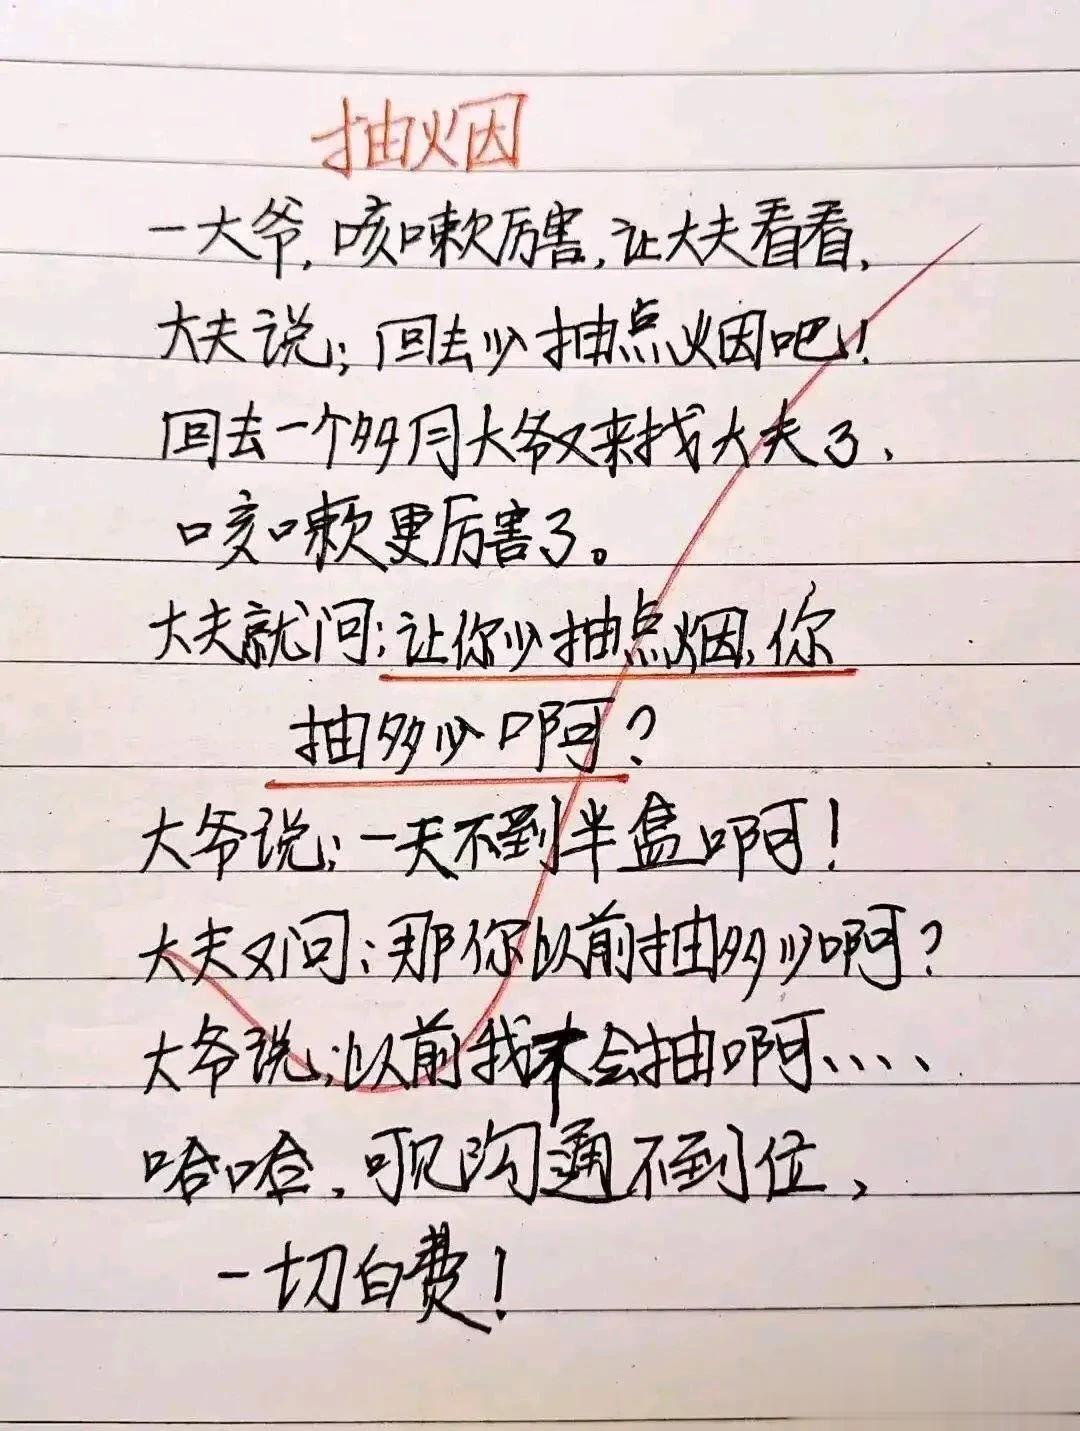 抽烟
一大爷,咳嗽厉害,让大夫看看,
大夫说;回去少抽点烟吧!
回去一个多月大爷又来找大夫了、
咳嗽更厉害了。
大夫就问:让你少抽点烟,你
抽多少啊?
大爷说;一天不到半盒啊!
大夫又问:那你以前抽多少啊?
大爷说;以前我不会抽啊、、、、
哈哈,可见沟通不到位,
一切白费!